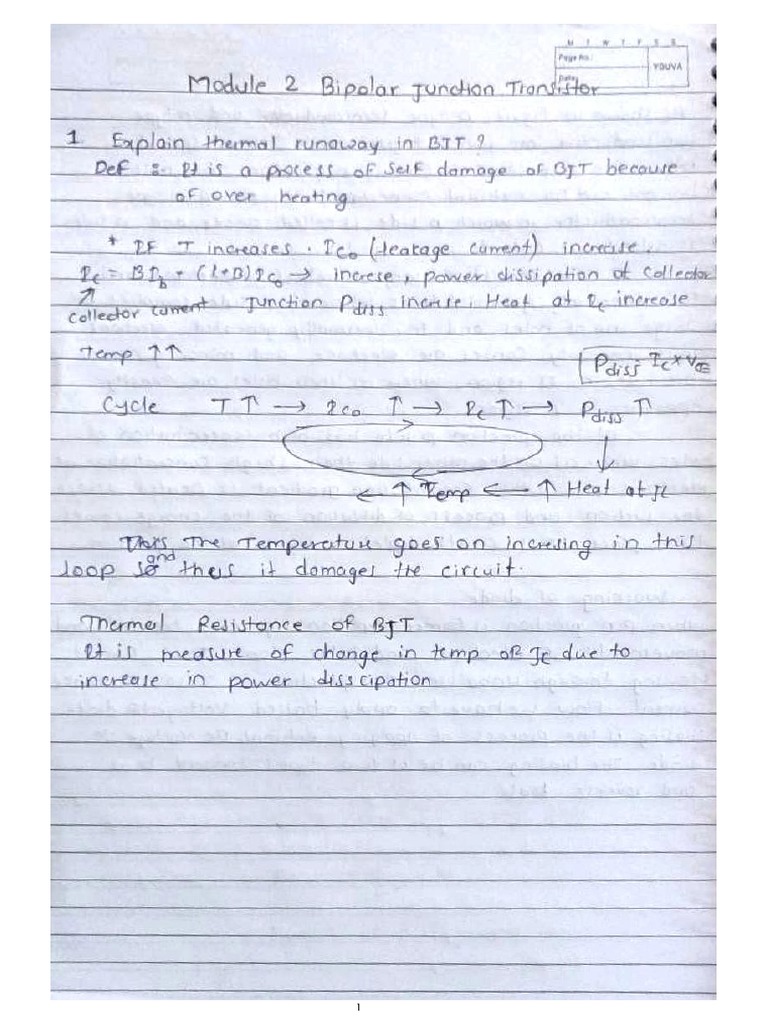 M T W T F S S
Page No.:
YOUVA
Date
Module 2 Bipolar Junction Transistor
1 Explain thermal runaway in BJT?
Def : It is a process of self damage of BJT because
of over heating
* If T increases . Ico (leakage current) increase.
Ic = BIb + (1+B)Ico → increse, power dissipation of collector
↗
collector current Junction Pdiss increse, Heat at Jc increase
Temp ↑↑
Pdiss = Ic x VCE
Cycle T ↑ → Ico ↑ → Ic ↑ → Pdiss ↑
↓
← ↑ Temp ← ↑ Heat at Jc
The Temperature goes on incresing in this
loop and thus it damages the circuit.
Thermal Resistance of BJT
It is measure of change in temp of Jc due to
increase in power disscipation
1